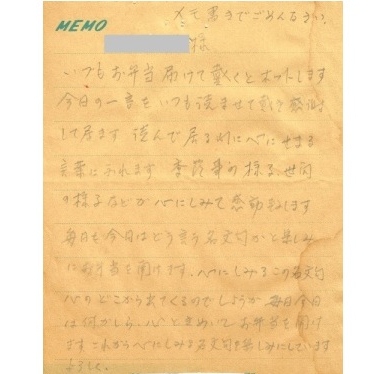 メモ書きでごめんなさい。
MEMO
様
いつもお弁当届けて戴くとホットします
今日の一言をいつも読ませて戴き感謝
して居ます 読んで居る内に心にせまる
言葉にふれます 季節事の様子、世間
の様子などが心にしみて感動します
毎日を今日はどう言う名文句かと楽しみ
にお弁当を開けます、心にしみるこの名文句
心のどこから出てくるのでしょうか 毎日今日
は何かしら、心ときめいてお弁当を開け
ます これからも心にしみる名文句を楽しみにしています
よろしく。